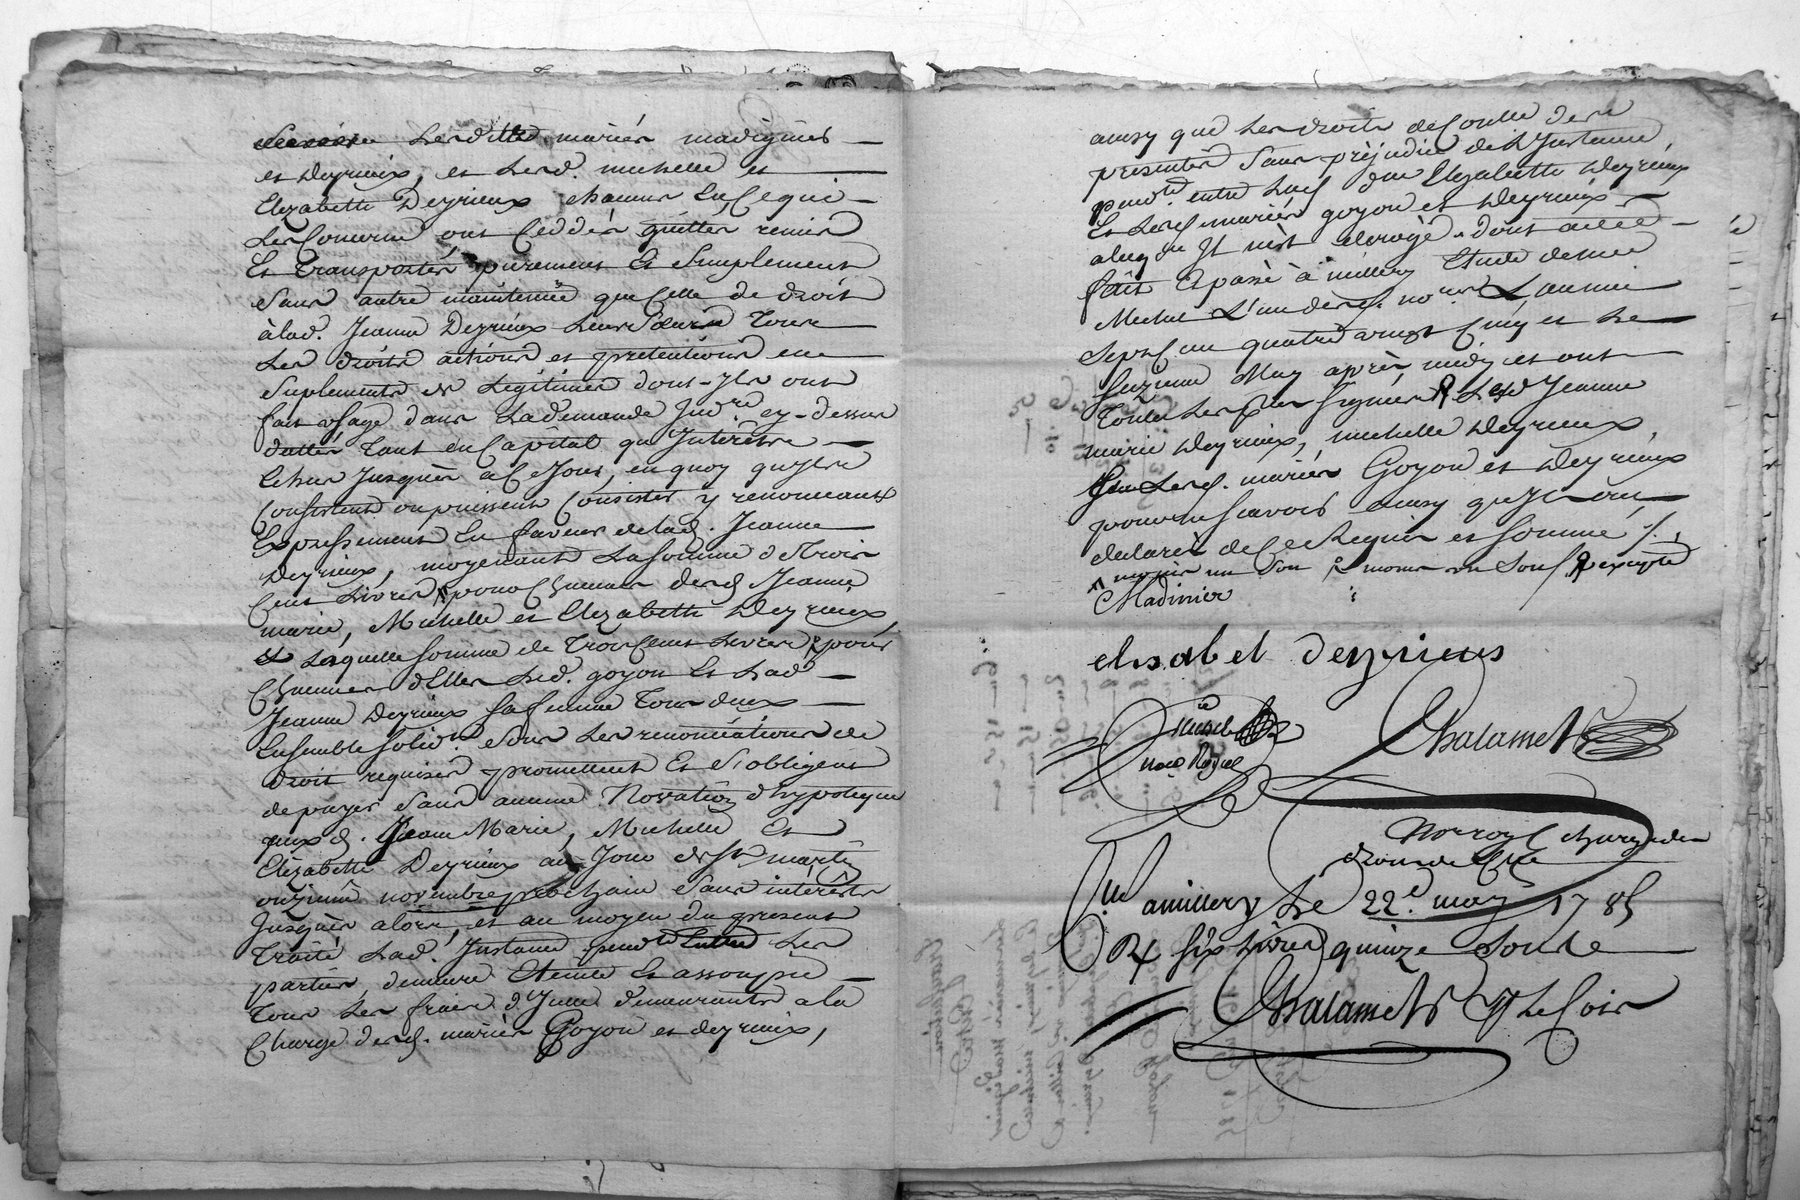 Lesditte mariés madignés
et Deyrieux, et Lesd. michelle et
Elizabette Deyrieux chacun En Ce qui
Les Concerne ont Ceddés quittés remis
Et transportés purement Et Simplement
Sans autre maintenüe que Celle de droit
à lad. Jeanne Deyrieux Leur Sœur Tous
Les droits actions et pretentions en
Suplements de Légitimes dont-Yls ont
fait Usage dans La demande Jud.re cy-dessus
dattés Tant en Capital qu'Jnterêts
Echus Jusques à Ce Jour, en quoy qu'yls
Consistent ou puissent Consister y renonceant
Expressement En faveur de lad. Jeanne
Deyrieux, moyenant La somme de Trois
Cent Livres pour Chacune desd. Jeanne
marie, Michelle et Elizabette Deyrieux,
Laquelle somme de Trois Cent Livres pour
Chacune d'Elles Led. goyon Et Lad.
Jeanne Deyrieux sa femme Tous deux
Ensemble solid.t Sous Les renonciations de
droit requises promettent Et S'obligent
de payer Sans aucune Novation d'hypoteque
auxd. Jeanne Marie, Michelle Et
Elizabette Deyrieux au Jour de St martin
onzieme novembre prochain Sans intérêts
Jusques alors, et au moyen du present
Traité Lad. Jnstance pend.te Entre Les
parties, demeure Eteinte Et assoupie
Tous Les frais d'Ycelle demeurants a la
Charge desd. mariés Goyon et deyrieux,
ainsy que Les droits de Contlle des
presentes Sans prejudice de L'Jnstance
pend.te entre Lad. Elizabette Deyrieux
Et Lesd. mariés goyon et Deyrieux
a laq.lle Jl n'est derogé, dont acte
fait Et passé à millery Etude de me
Michel L'un desd. no.res L'an mil
Sept Cent quatre vingt Cinq et Le
Seizieme May après midy et ont
Toutes Les parties Signés Lesd. Jeanne
marie Deyrieux, michelle Deyrieux,
Lesd. mariés Goyon et Deyrieux
pour ne sçavoir ainsy qu'Jls ont
declarés de Ce Requis et sommés
moins un Sou moins un Sou excepté
Madinier
elisabet deyrieus
Michel
no.re Royal
Chalamet
Norroy chargé des
droits de
Con.lle a millery Le 22.e may 1785
Rx six livres quinze Sous
Chalamet Lecoir